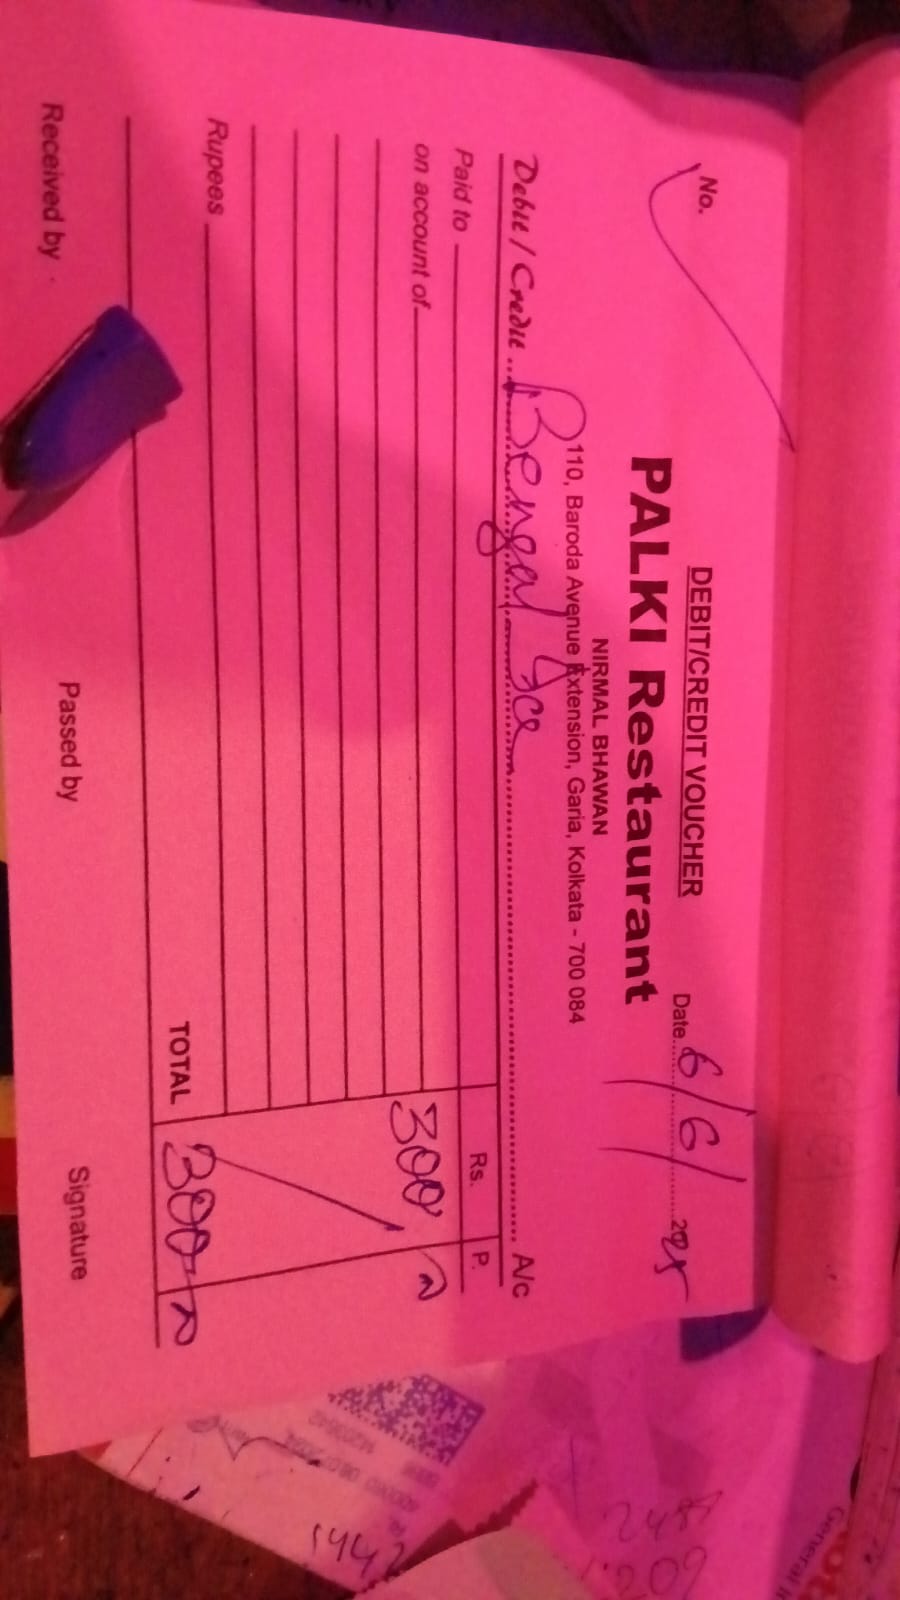 DEBIT/CREDIT VOUCHER
No.
Date 6/6/2025
PALKI Restaurant
NIRMAL BHAWAN
110, Baroda Avenue Extension, Garia, Kolkata - 700 084
Debit / Credit Bengal Ice A/c
Rs. P.
Paid to
on account of 300
Rupees
TOTAL 300
Received by Passed by Signature
1442